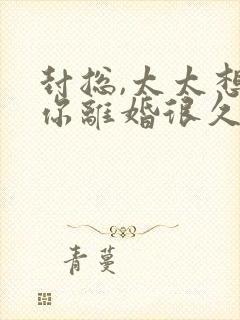 封总,太太想
你離婚很久
青蔓